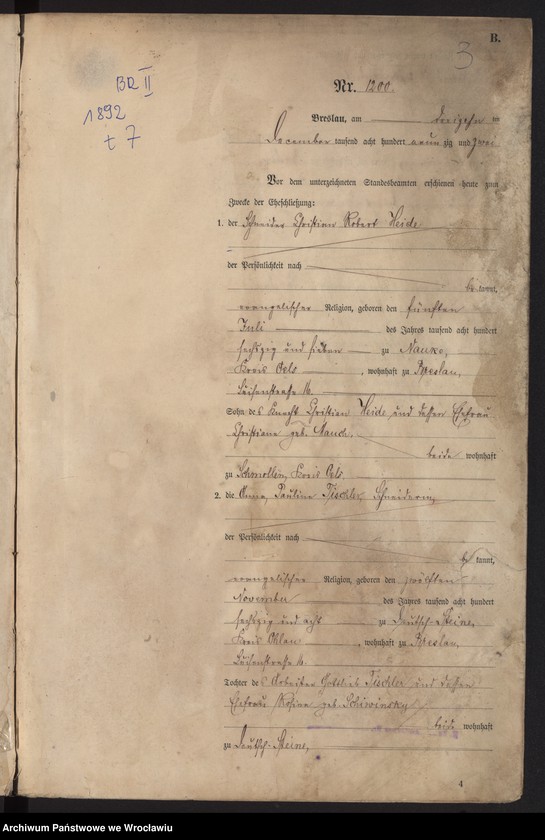 B.
3
BR II
1892
t 7
Nr. 1200.
Breslau, am dreizehn ten
December tausend acht hundert neunzig und zwei
Vor dem unterzeichneten Standesbeamten erschienen heute zum
Zwecke der Eheschließung:
1. der Schneider Christian Robert Heide
der Persönlichkeit nach
be kannt,
evangelischer Religion, geboren den fünften
Juli des Jahres tausend acht hundert
sechszig und sieben zu Nauke,
Kreis Oels, wohnhaft zu Breslau,
16.
Sohn des Knecht Christian Heide und dessen Ehefrau
Christiane geb.
beide wohnhaft
zu Schmollen, Kreis Oels.
2. die Anna Pauline Tischler, Schneiderin,
der Persönlichkeit nach
be kannt,
evangelischer Religion, geboren den zwölften
November des Jahres tausend acht hundert
sechszig und acht zu Deutsch-Steine,
Kreis Ohlau, wohnhaft zu Breslau,
Tochter des Arbeiter Gottlieb Tischler und dessen
Ehefrau Rosina geb. Schiwinsky
beide wohnhaft
zu Deutsch-Steine,
4
Archiwum Państwowe we Wrocławiu